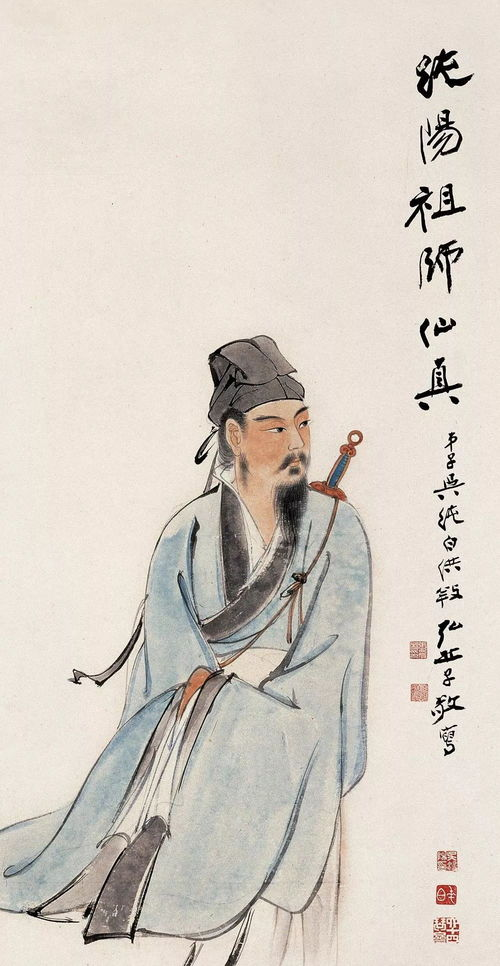 純陽祖師仙真
弟子吳純白供養弘丘子敬寫